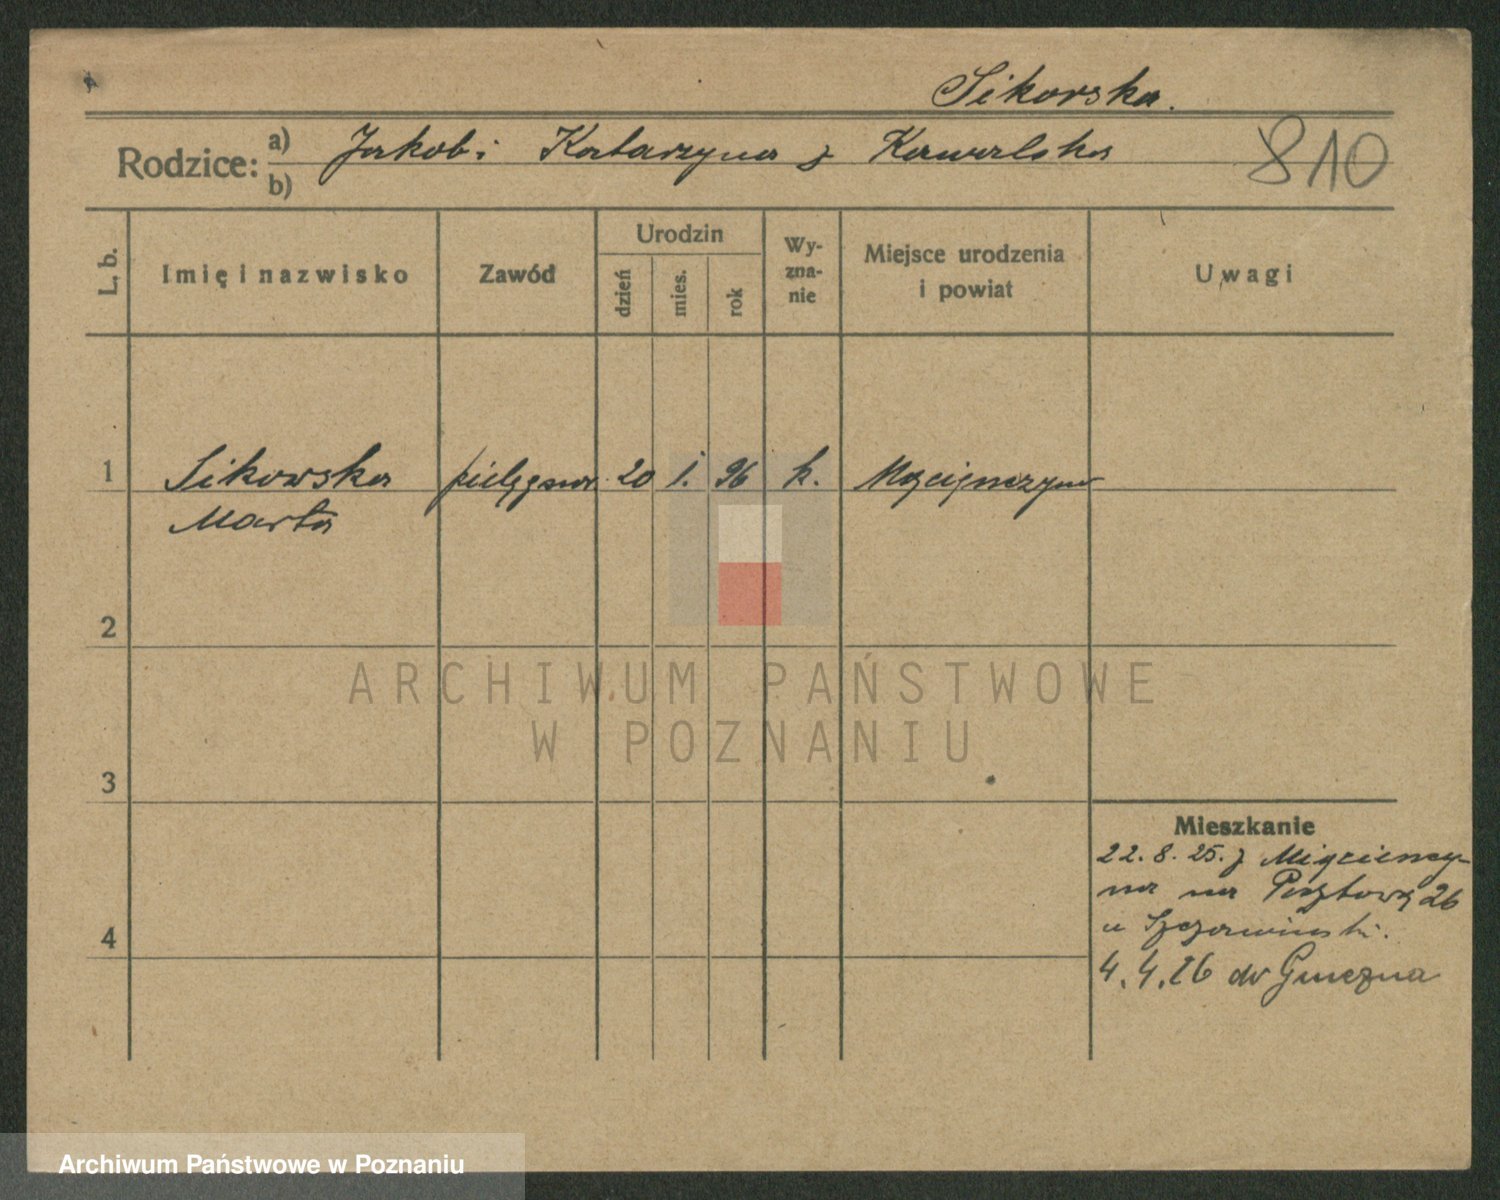 Sikorska.
Rodzice: a) Jakob i Katarzyna z Kawalska
b)
810
L. b.
Imię i nazwisko
Zawód
Urodzin
dzień
mies.
rok
Wy-
zna-
nie
Miejsce urodzenia
i powiat
Uwagi
1 Sikorska pielęgniar. 20 1. 96 k.
Marta
2
3
4
Mieszkanie
22. 8. 25. z
na na Pocztową 26
u
4. 4. 26 do Gniezna
ARCHIWUM PAŃSTWOWE
W POZNANIU
Archiwum Państwowe w Poznaniu